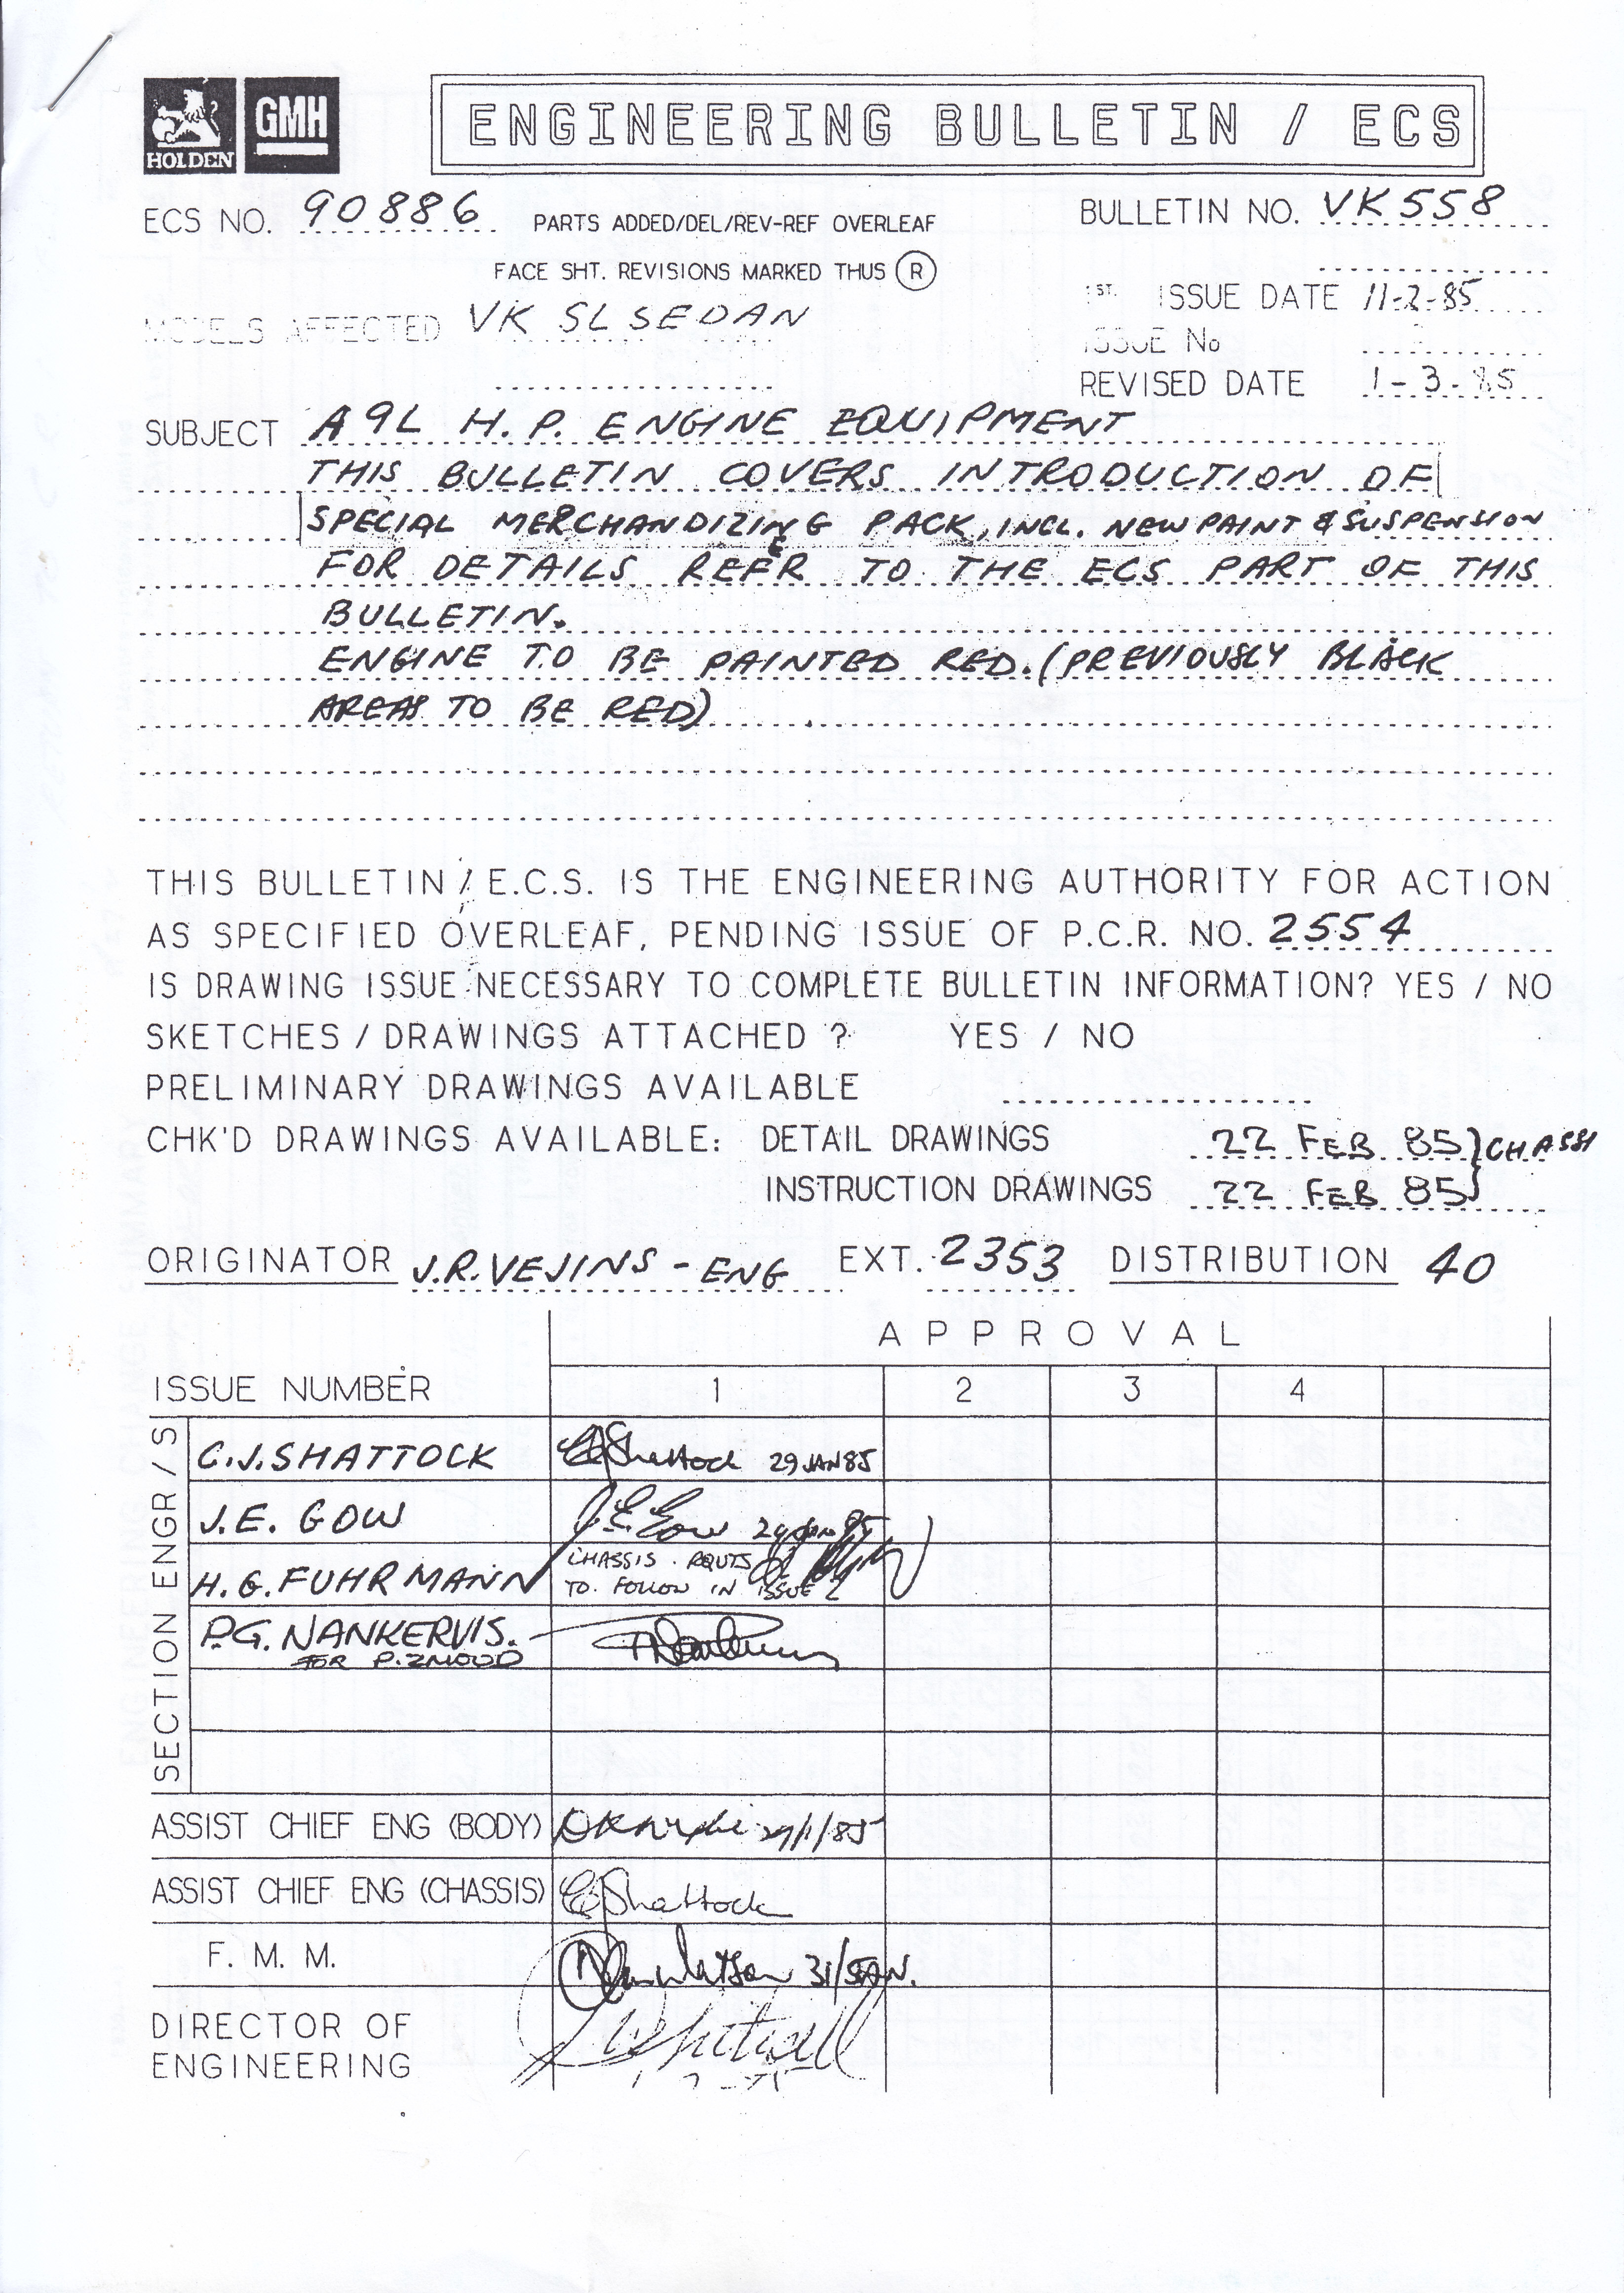 HOLDEN GMH ENGINEERING BULLETIN / ECS
ECS NO. 90886 PARTS ADDED/DEL/REV-REF OVERLEAF BULLETIN NO. VK558
FACE SHT. REVISIONS MARKED THUS R
1ST. ISSUE DATE 11-2-85
MODELS AFFECTED VK SL SEDAN
ISSUE No
REVISED DATE 1-3-85
SUBJECT A9L H.P. ENGINE EQUIPMENT
THIS BULLETIN COVERS INTRODUCTION OF
SPECIAL MERCHANDIZING PACK, INCL. NEW PAINT & SUSPENSION
FOR DETAILS REFER TO THE ECS PART OF THIS
BULLETIN.
ENGINE TO BE PAINTED RED. (PREVIOUSLY BLACK
AREAS TO BE RED)
THIS BULLETIN / E.C.S. IS THE ENGINEERING AUTHORITY FOR ACTION
AS SPECIFIED OVERLEAF, PENDING ISSUE OF P.C.R. NO. 2554
IS DRAWING ISSUE NECESSARY TO COMPLETE BULLETIN INFORMATION? YES / NO
SKETCHES / DRAWINGS ATTACHED ? YES / NO
PRELIMINARY DRAWINGS AVAILABLE
CHK'D DRAWINGS AVAILABLE: DETAIL DRAWINGS 22 FEB 85 } CHASSI
INSTRUCTION DRAWINGS 22 FEB 85
ORIGINATOR J.R. VEJINS - ENG EXT. 2353 DISTRIBUTION 40
APPROVAL
ISSUE NUMBER 1 2 3 4
SECTION ENGR / S
C.J. SHATTOCK Shattock 29 JAN 85
J.E. GOW J.E. Gow 29 Jan 85
H.G. FUHRMANN CHASSIS RQUTS
TO FOLLOW IN ISSUE 2
P.G. NANKERVIS.
FOR P. ZMOOD
ASSIST CHIEF ENG (BODY) 29/1/85
ASSIST CHIEF ENG (CHASSIS) Shattock
F. M. M. 31/JAN.
DIRECTOR OF
ENGINEERING